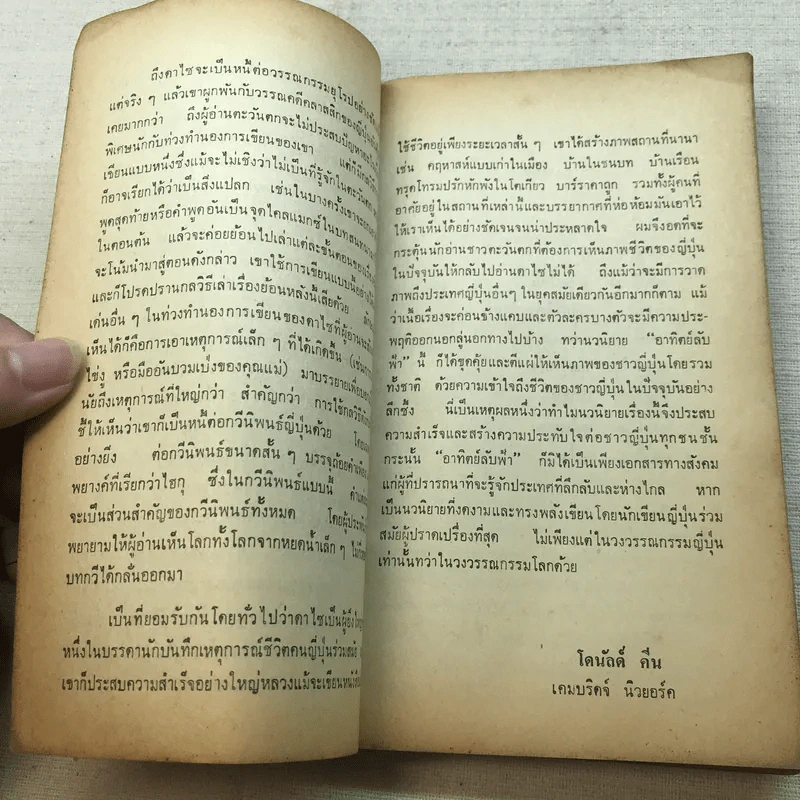 ถึงดาไซจะเป็นหนี้ต่อวรรณกรรมยุโรปอย่าง
แต่จริง ๆ แล้วเขาผูกพันกับวรรณคดีคลาสสิกของญี่ปุ่น
เคยมากกว่า ถึงผู้อ่านตะวันตกจะไม่ประสบปัญหา
พิเศษนักกับท่วงทำนองการเขียนของเขา แต่ก็มี
เขียนแบบหนึ่งซึ่งแม้จะไม่เชิงว่าไม่เป็นที่รู้จักในตะวันตก
ก็อาจเรียกได้ว่าเป็นสิ่งแปลก เช่นในบางครั้งเขาจะ
พูดสุดท้ายหรือคำพูดอันเป็นจุดไคลแมกซ์ในบทสนทนา
ในตอนต้น แล้วจะค่อยย้อนไปเล่าแต่ละขั้นตอนของ
จะโน้มนำมาสู่ตอนดังกล่าว เขาใช้การเขียนแบบนี้อย่าง
และก็โปรดปรานกลวิธีเล่าเรื่องย้อนหลังนี้เสียด้วย
เด่นอื่น ๆ ในท่วงทำนองการเขียนของดาไซที่ผู้อ่าน
เห็นได้ก็คือการเอาเหตุการณ์เล็ก ๆ ที่ได้เกิดขึ้น (เช่น
ไข่งู หรือมืออันบวมเบ่งของคุณแม่) มาบรรยายเพื่อ
นัยถึงเหตุการณ์ที่ใหญ่กว่า สำคัญกว่า การใช้กลวิธี
ชี้ให้เห็นว่าเขาก็เป็นหนี้ต่อกวีนิพนธ์ญี่ปุ่นด้วย
อย่างยิ่ง ต่อกวีนิพนธ์ขนาดสั้น ๆ บรรจุถ้อยคำเพียง
พยางค์ที่เรียกว่าไฮกุ ซึ่งในกวีนิพนธ์แบบนี้
จะเป็นส่วนสำคัญของกวีนิพนธ์ทั้งหมด โดยผู้ประพันธ์
พยายามให้ผู้อ่านเห็นโลกทั้งโลกจากหยดน้ำเล็ก ๆ
บทกวีได้กลั่นออกมา
เป็นที่ยอมรับกันโดยทั่วไปว่าดาไซเป็นผู้
หนึ่งในบรรดานักบันทึกเหตุการณ์ชีวิตคนญี่ปุ่นร่วมสมัย
เขาก็ประสบความสำเร็จอย่างใหญ่หลวงแม้จะเขียน
ใช้ชีวิตอยู่เพียงระยะเวลาสั้น ๆ เขาได้สร้างภาพสถานที่นานา
เช่น คฤหาสน์แบบเก่าในเมือง บ้านในชนบท บ้านเรือน
ทรุดโทรมปรักหักพังในโตเกียว บาร์ราคาถูก รวมทั้งผู้คนที่
อาศัยอยู่ในสถานที่เหล่านี้และบรรยากาศที่ห่อห้อมมันเอาไว้
ให้เราเห็นได้อย่างชัดเจนจนน่าประหลาดใจ ผมจึงอดที่จะ
กระตุ้นนักอ่านชาวตะวันตกที่ต้องการเห็นภาพชีวิตของญี่ปุ่น
ในปัจจุบันให้กลับไปอ่านดาไซไม่ได้ ถึงแม้ว่าจะมีการวาด
ภาพถึงประเทศญี่ปุ่นอื่นๆ ในยุคสมัยเดียวกันอีกมากก็ตาม แม้
ว่าเนื้อเรื่องจะค่อนข้างแคบและตัวละครบางตัวจะมีความประ-
พฤติออกนอกลู่นอกทางไปบ้าง ทว่านวนิยาย “อาทิตย์ลับ
ฟ้า” นี้ ก็ได้ขุดคุ้ยและตีแผ่ให้เห็นภาพของชาวญี่ปุ่นโดยรวม
ทั้งชาติ ด้วยความเข้าใจถึงชีวิตของชาวญี่ปุ่นในปัจจุบันอย่าง
ลึกซึ้ง นี่เป็นเหตุผลหนึ่งว่าทำไมนวนิยายเรื่องนี้จึงประสบ
ความสำเร็จและสร้างความประทับใจต่อชาวญี่ปุ่นทุกชนชั้น
กระนั้น “อาทิตย์ลับฟ้า” ก็มิได้เป็นเพียงเอกสารทางสังคม
แก่ผู้ที่ปรารถนาที่จะรู้จักประเทศที่ลึกลับและห่างไกล หาก
เป็นนวนิยายที่งดงามและทรงพลังเขียนโดยนักเขียนญี่ปุ่นร่วม
สมัยผู้ปราดเปรื่องที่สุด ไม่เพียงแต่ในวงวรรณกรรมญี่ปุ่น
เท่านั้นทว่าในวงวรรณกรรมโลกด้วย
โดนัลด์ คีน
เคมบริดจ์ นิวยอร์ค